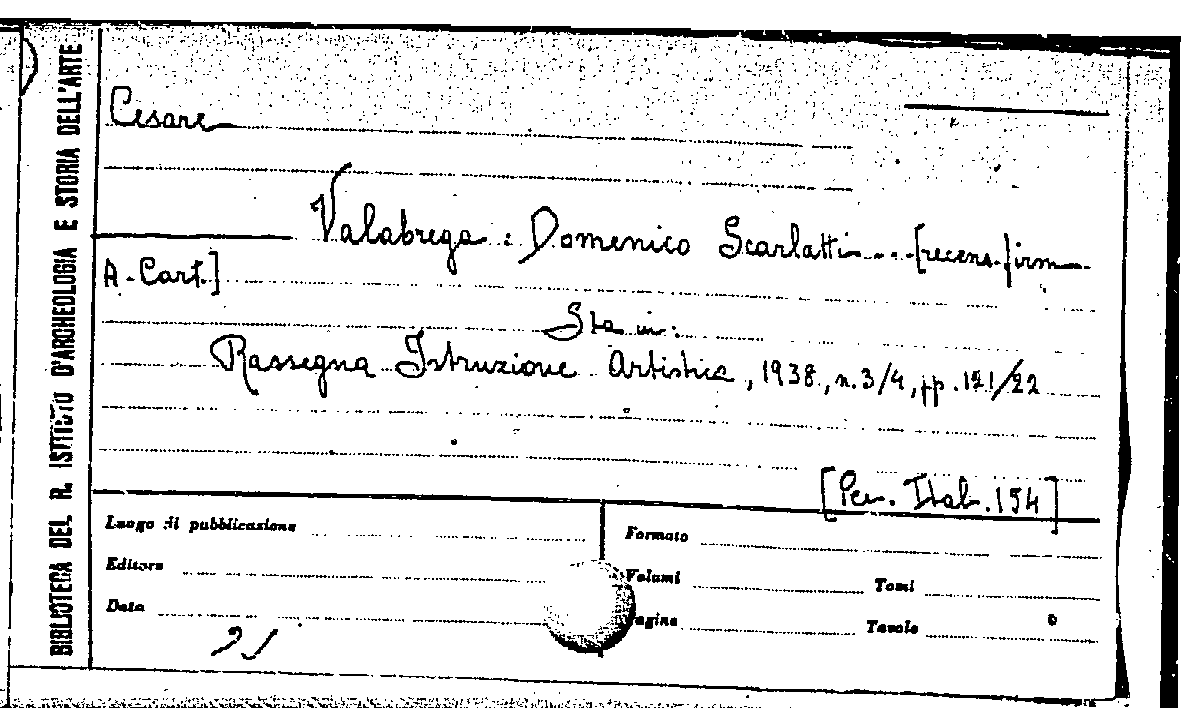 BIBLIOTECA DEL R. ISTITUTO D'ARCHEOLOGIA E STORIA DELL'ARTE
Cesare
Valabrega : Domenico Scarlatti... [recens. firm
A. Cart.]
Sta in:
Rassegna Istruzione Artistica, 1938, n.3/4, pp. 121/22
[Per. Ital. 154]
Luogo di pubblicazione
Formato
Editore
Volumi
Tomi
Data
Pagine
Tavole